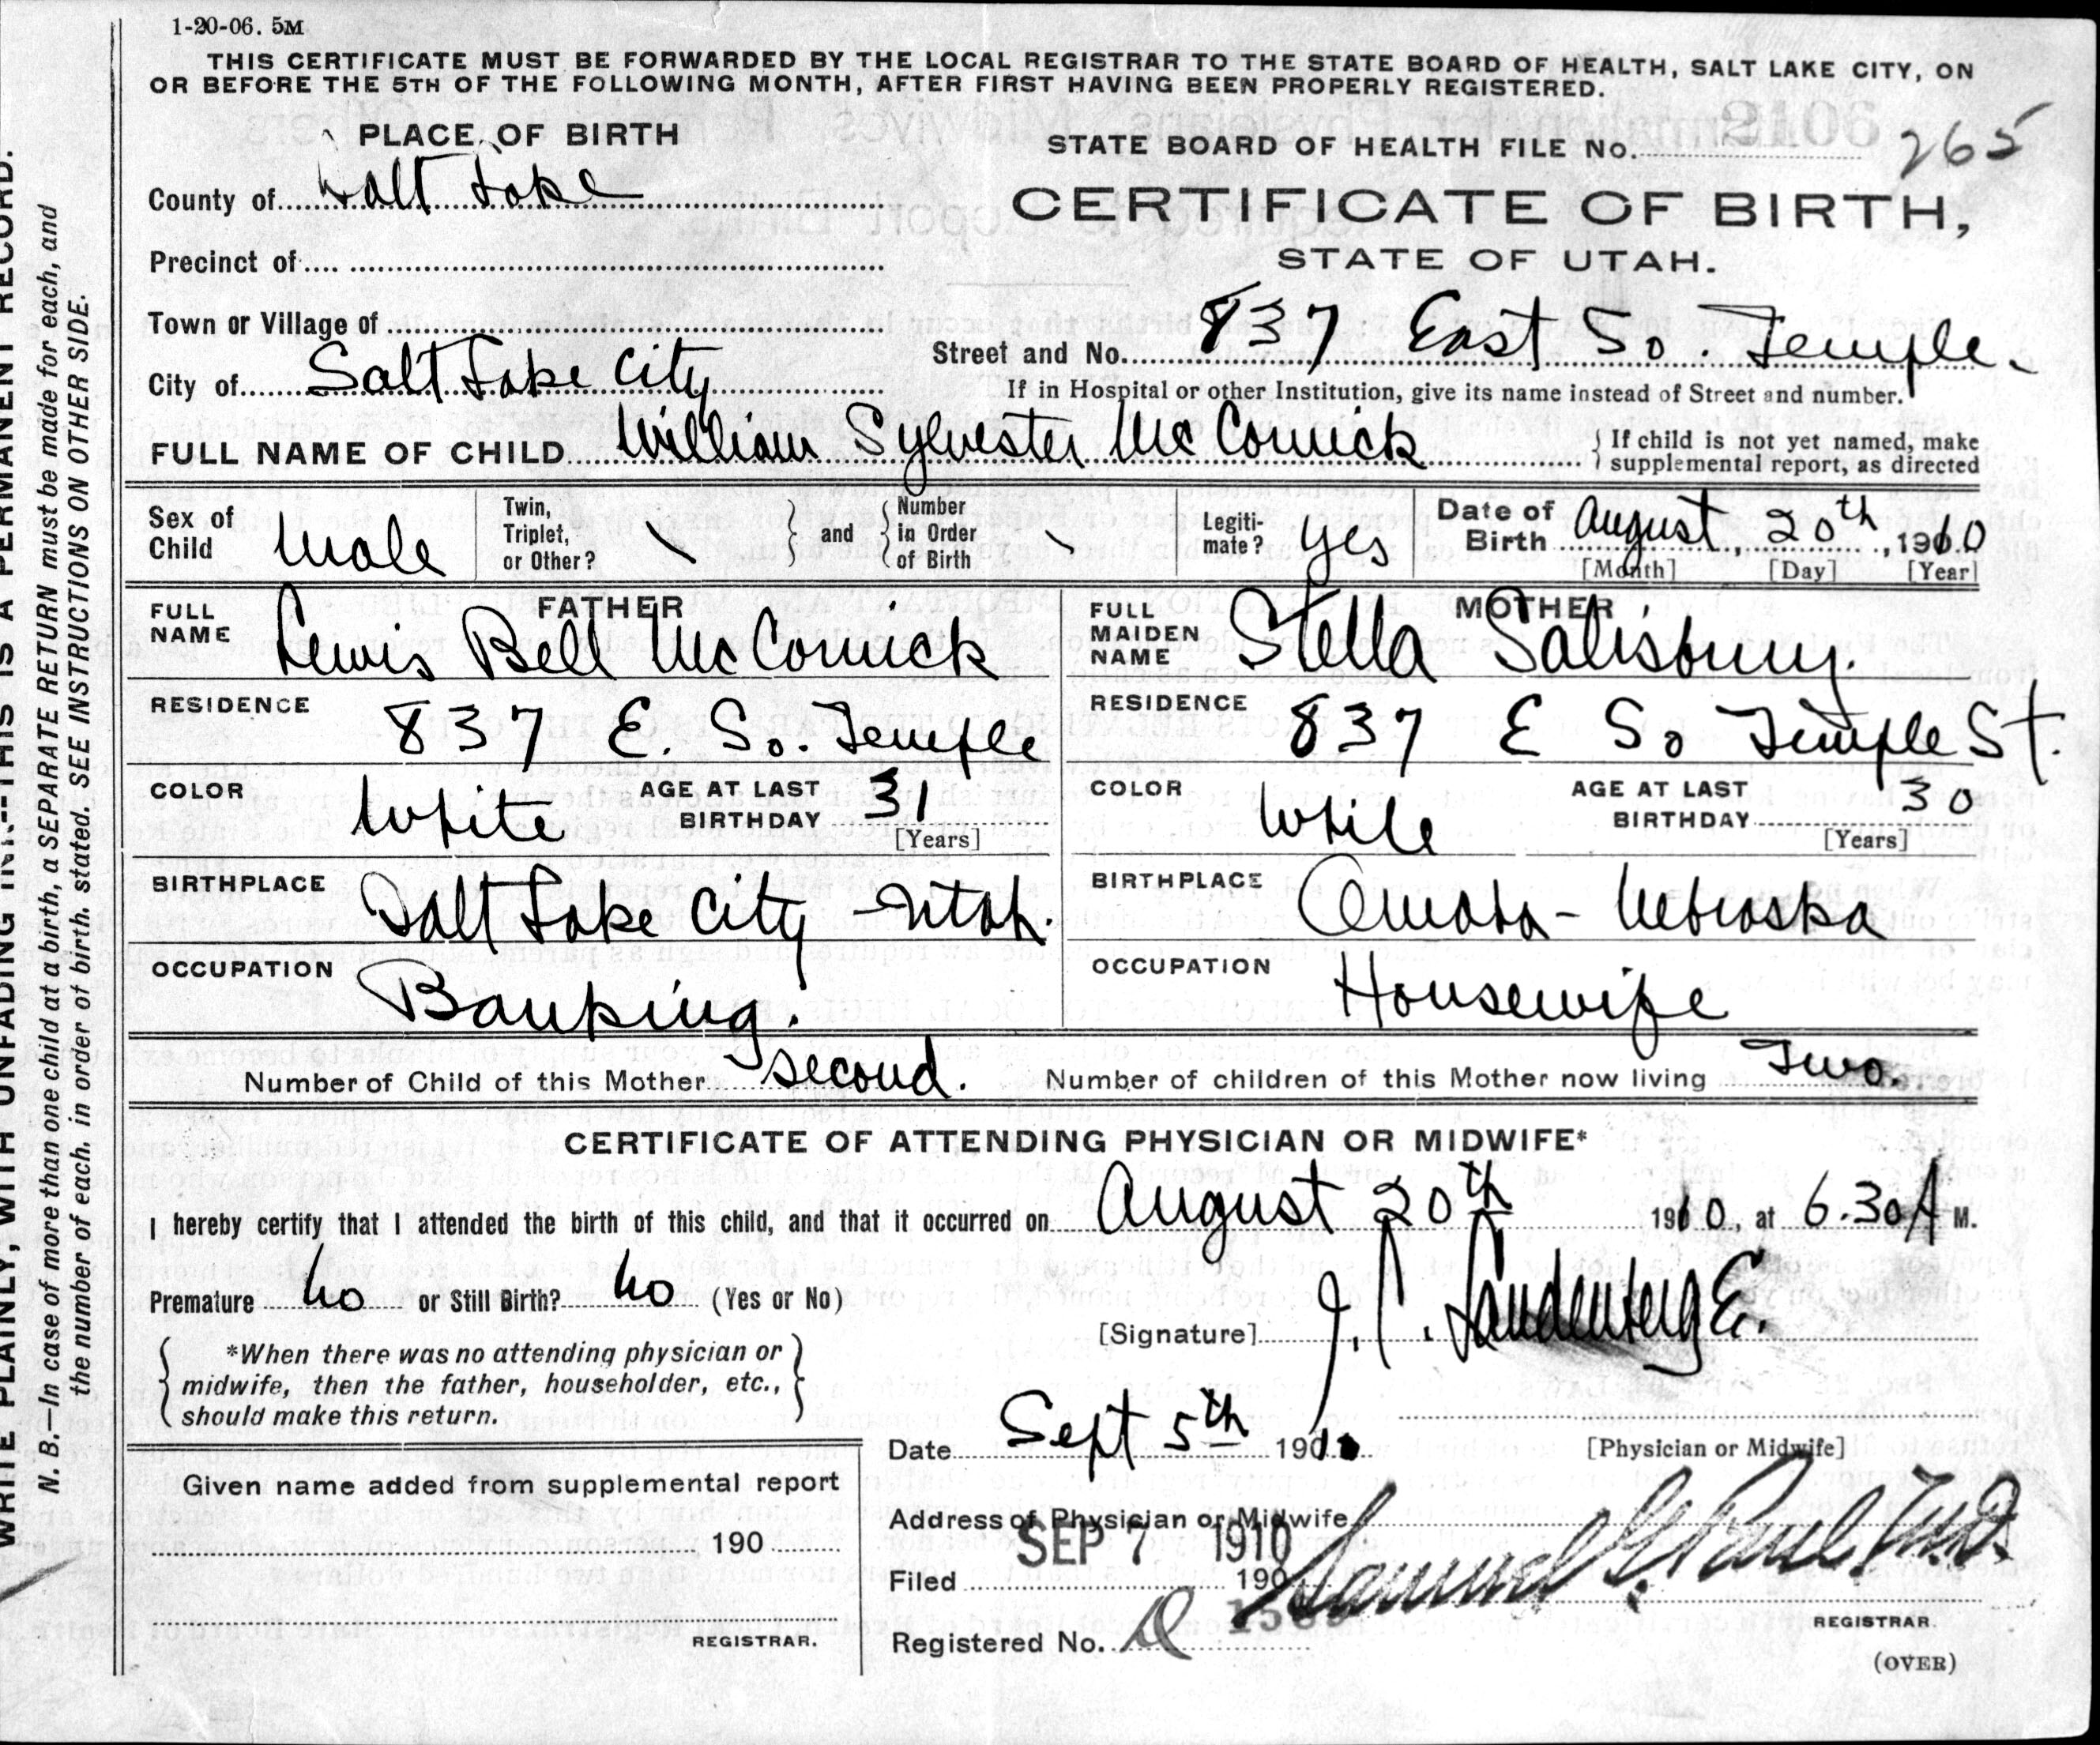 1-20-06. 5M
THIS CERTIFICATE MUST BE FORWARDED BY THE LOCAL REGISTRAR TO THE STATE BOARD OF HEALTH, SALT LAKE CITY, ON
OR BEFORE THE 5TH OF THE FOLLOWING MONTH, AFTER FIRST HAVING BEEN PROPERLY REGISTERED.
WRITE PLAINLY, WITH UNFADING INK--THIS IS A PERMANENT RECORD.
N. B.—In case of more than one child at a birth, a SEPARATE RETURN must be made for each, and
the number of each, in order of birth, stated. SEE INSTRUCTIONS ON OTHER SIDE.
PLACE OF BIRTH
County of Salt Lake
Precinct of
Town or Village of
City of Salt Lake City
STATE BOARD OF HEALTH FILE No. 265
CERTIFICATE OF BIRTH,
STATE OF UTAH.
Street and No. 837 East So. Temple.
If in Hospital or other Institution, give its name instead of Street and number.
FULL NAME OF CHILD William Sylvester McCornick
If child is not yet named, make
supplemental report, as directed
Sex of Child male
Twin, Triplet, or Other? \ and Number in Order of Birth \
Legiti-mate? yes
Date of Birth August, 20th, 1910
[Month] [Day] [Year]
FATHER
FULL NAME Lewis Bell McCornick
RESIDENCE 837 E. So. Temple
COLOR White AGE AT LAST BIRTHDAY 31
[Years]
BIRTHPLACE Salt Lake City - Utah.
OCCUPATION Banking.
MOTHER
FULL MAIDEN NAME Stella Salisbury.
RESIDENCE 837 E So Temple St.
COLOR White AGE AT LAST BIRTHDAY 30
[Years]
BIRTHPLACE Omaha - Nebraska
OCCUPATION Housewife
Number of Child of this Mother second. Number of children of this Mother now living Two.
CERTIFICATE OF ATTENDING PHYSICIAN OR MIDWIFE*
I hereby certify that I attended the birth of this child, and that it occurred on August 20th 1910, at 6.30 A M.
Premature no or Still Birth? no (Yes or No)
*When there was no attending physician or
midwife, then the father, householder, etc.,
should make this return.
[Signature] J. C. Landenberg E.
Date Sept 5th 1910
[Physician or Midwife]
Given name added from supplemental report
190
REGISTRAR.
Address of Physician or Midwife
Filed SEP 7 1910 190
Samuel G. Paul, M.D.
REGISTRAR
Registered No. 1589
(OVER)